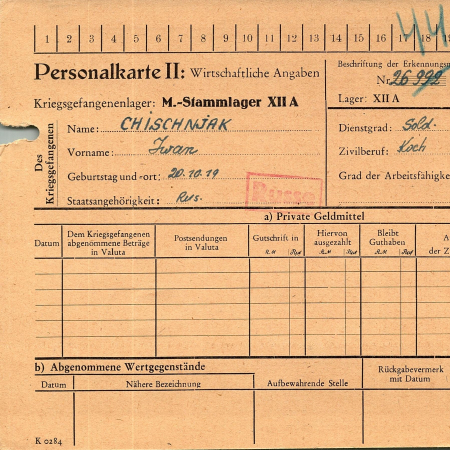 1 2 3 4 5 6 7 8 9 10 11 12 13 14 15 16 17 18
44
Personalkarte II: Wirtschaftliche Angaben
Beschriftung der Erkennungsm
Nr. 26 999
Kriegsgefangenenlager: M.-Stammlager XII A
Lager: XII A
Des Kriegsgefangenen
Name: CHISCHNJAK
Dienstgrad: Sold.
Vorname: Iwan
Zivilberuf: Koch
Geburtstag und -ort: 20.10.19
Grad der Arbeitsfähigke
Staatsangehörigkeit: Rus.
Russe
a) Private Geldmittel
Datum
Dem Kriegsgefangenen abgenommene Beträge in Valuta
Postsendungen in Valuta
Gutschrift in
Hiervon ausgezahlt
Bleibt Guthaben
A
der Z
RM Rpf RM Rpf RM Rpf
b) Abgenommene Wertgegenstände
Datum
Nähere Bezeichnung
Aufbewahrende Stelle
Rückgabevermerk mit Datum
K 0284